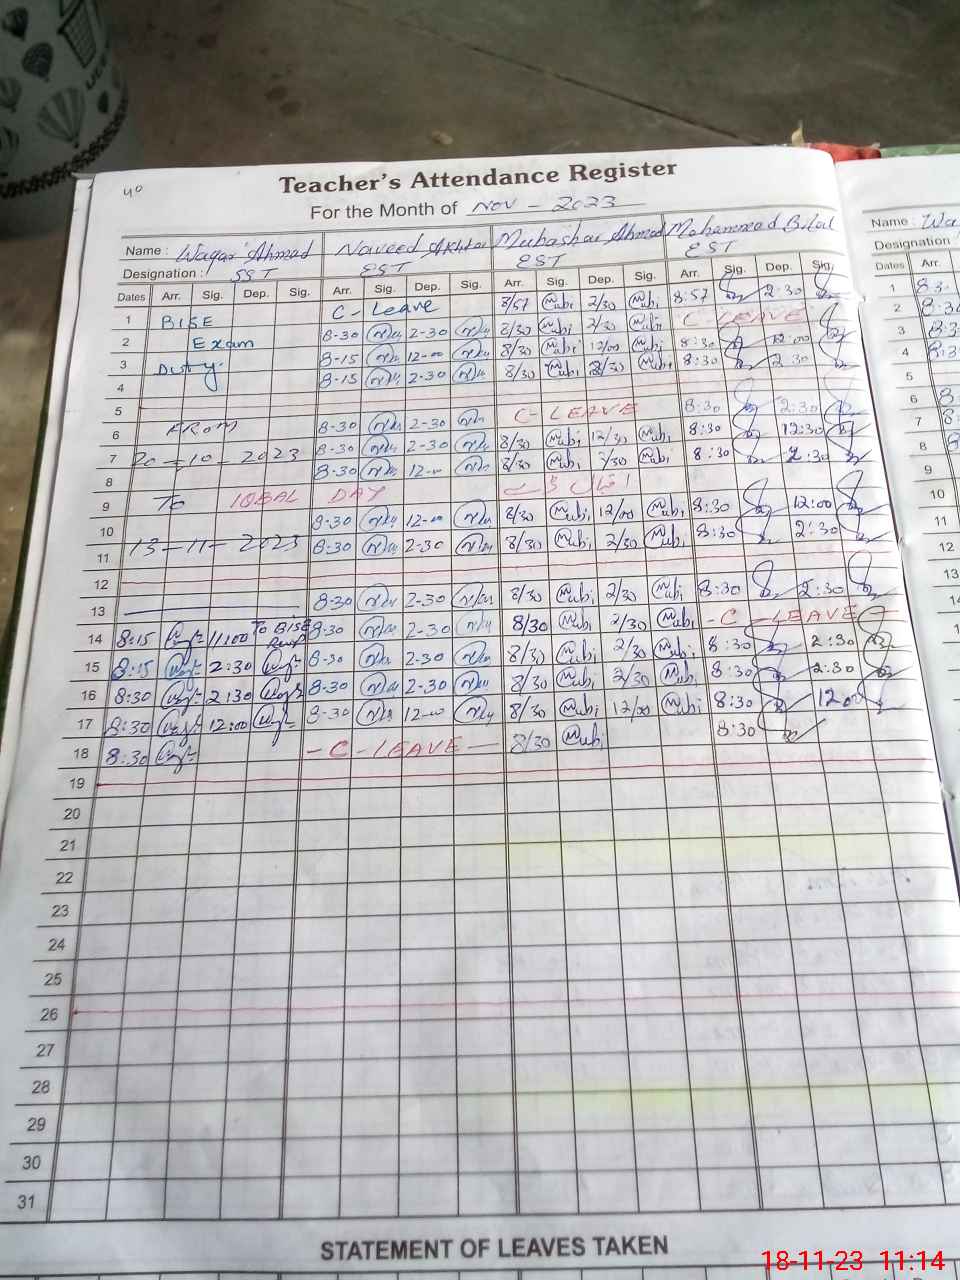 40
Teacher's Attendance Register
For the Month of Nov - 2023
Name : Waqar Ahmad Naveed Akhtar Mubashar Ahmad Mohammad Bilal
Designation : SST EST EST EST
Dates Arr. Sig. Dep. Sig. Arr. Sig. Dep. Sig. Arr. Sig. Dep. Sig. Arr. Sig. Dep. Sig.
1 BISE C- Leave 8/57 Mubi 2/30 Mubi 8:57 2:30
2 Exam 8-30 2-30 8/30 Mubi 2/30 Mubi C LEAVE
3 Duty 8-15 12-00 8/30 Mubi 12/00 Mubi 8:30 12:00
4 8-15 2-30 8/30 Mubi 2/30 Mubi 8:30 2:30
5
6 FROM 8-30 2-30 C- LEAVE 8:30 2:30
7 20-10-2023 8-30 2-30 8/30 Mubi 12/30 Mubi 8:30 12:30
8 8-30 12-00 8/30 Mubi 2/30 Mubi 8:30 2:30
9 TO IQBAL DAY
10 8-30 12-00 8/30 Mubi 12/00 Mubi 8:30 12:00
11 13-11-2023 8-30 2-30 8/30 Mubi 2/30 Mubi 8:30 2:30
12
13 8-30 2-30 8/30 Mubi 2/30 Mubi 8:30 2:30
14 8:15 11:00 To BISE 8-30 2-30 8/30 Mubi 2/30 Mubi - C - LEAVE -
15 8:15 2:30 8-30 2-30 8/30 Mubi 2/30 Mubi 8:30 2:30
16 8:30 2:30 8-30 2-30 8/30 Mubi 2/30 Mubi 8:30 2:30
17 8:30 12:00 8-30 12-00 8/30 Mubi 12/00 Mubi 8:30 12:00
18 8:30 - C - LEAVE - 8/30 Mubi 8:30
19
20
21
22
23
24
25
26
27
28
29
30
31
STATEMENT OF LEAVES TAKEN
Name : Wa
Designation :
Dates Arr.
1
2
3
4
5
6
7
8
9
10
11
12
13
18-11-23 11:14